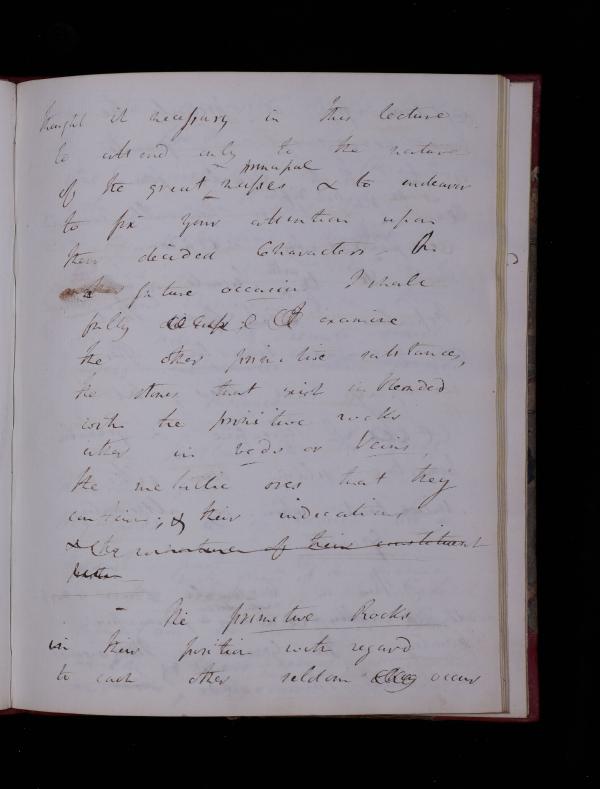 thought it necessary in this lecture
to attend only to the nature
principal
of the great masses & to endeavor
to fix your attention upon
their decided Characters. On
a future occasion I shall
fully examine
the other primitive substances,
the stones that exist imbedded
with the primitive rocks
either in beds or Veins,
the metallic ores that they
contain; & their indications
& the of their constituent
The primitive Rocks
in their position with regard
to each other seldom occur